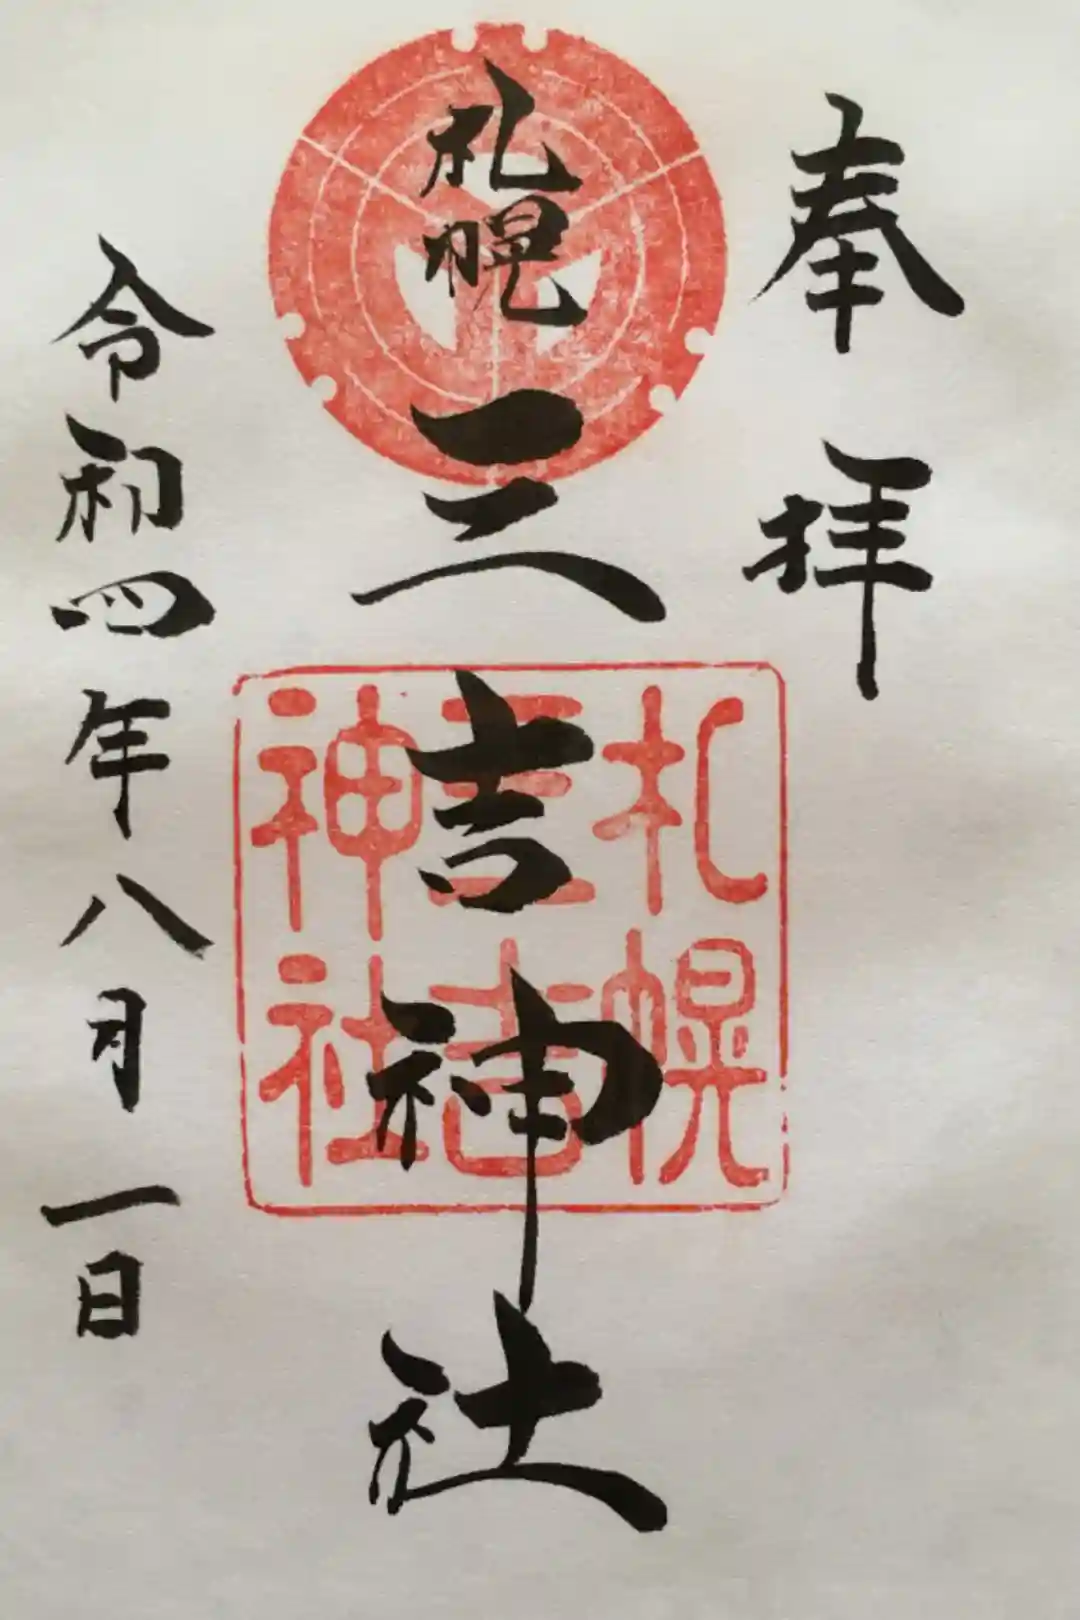 奉拝
札幌三吉神社
令和四年八月一日
札幌
三吉
神社